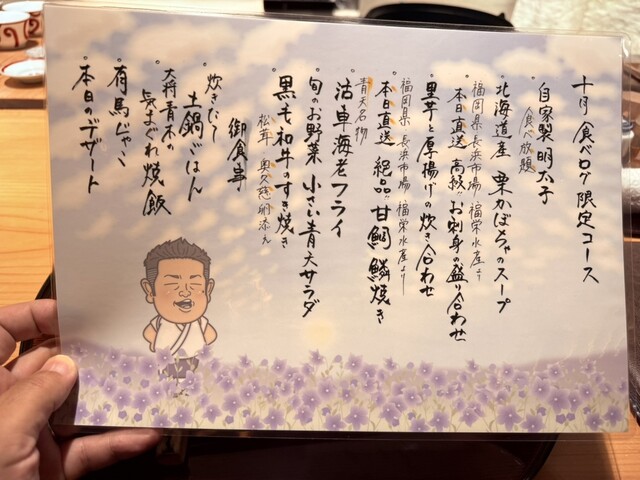 十月 食べログ 限定コース
自家製 明太子
食べ放題
北海道産 栗かぼちゃのスープ
福岡県 長浜市場 福栄水産より
本日直送 高級 お刺身の盛り合わせ
里芋と厚揚げの炊き合わせ
福岡県 長浜市場 福栄水産より
本日直送 絶品 甘鯛 鱗焼き
青天名物
活車海老フライ
旬のお野菜 小さい青天サラダ
黒毛和牛のすき焼き
松茸 奥久慈卵添え
御食事
炊きたて
土鍋ごはん
大将青木の
気まぐれ焼飯
有馬じゃこ
本日のデザート